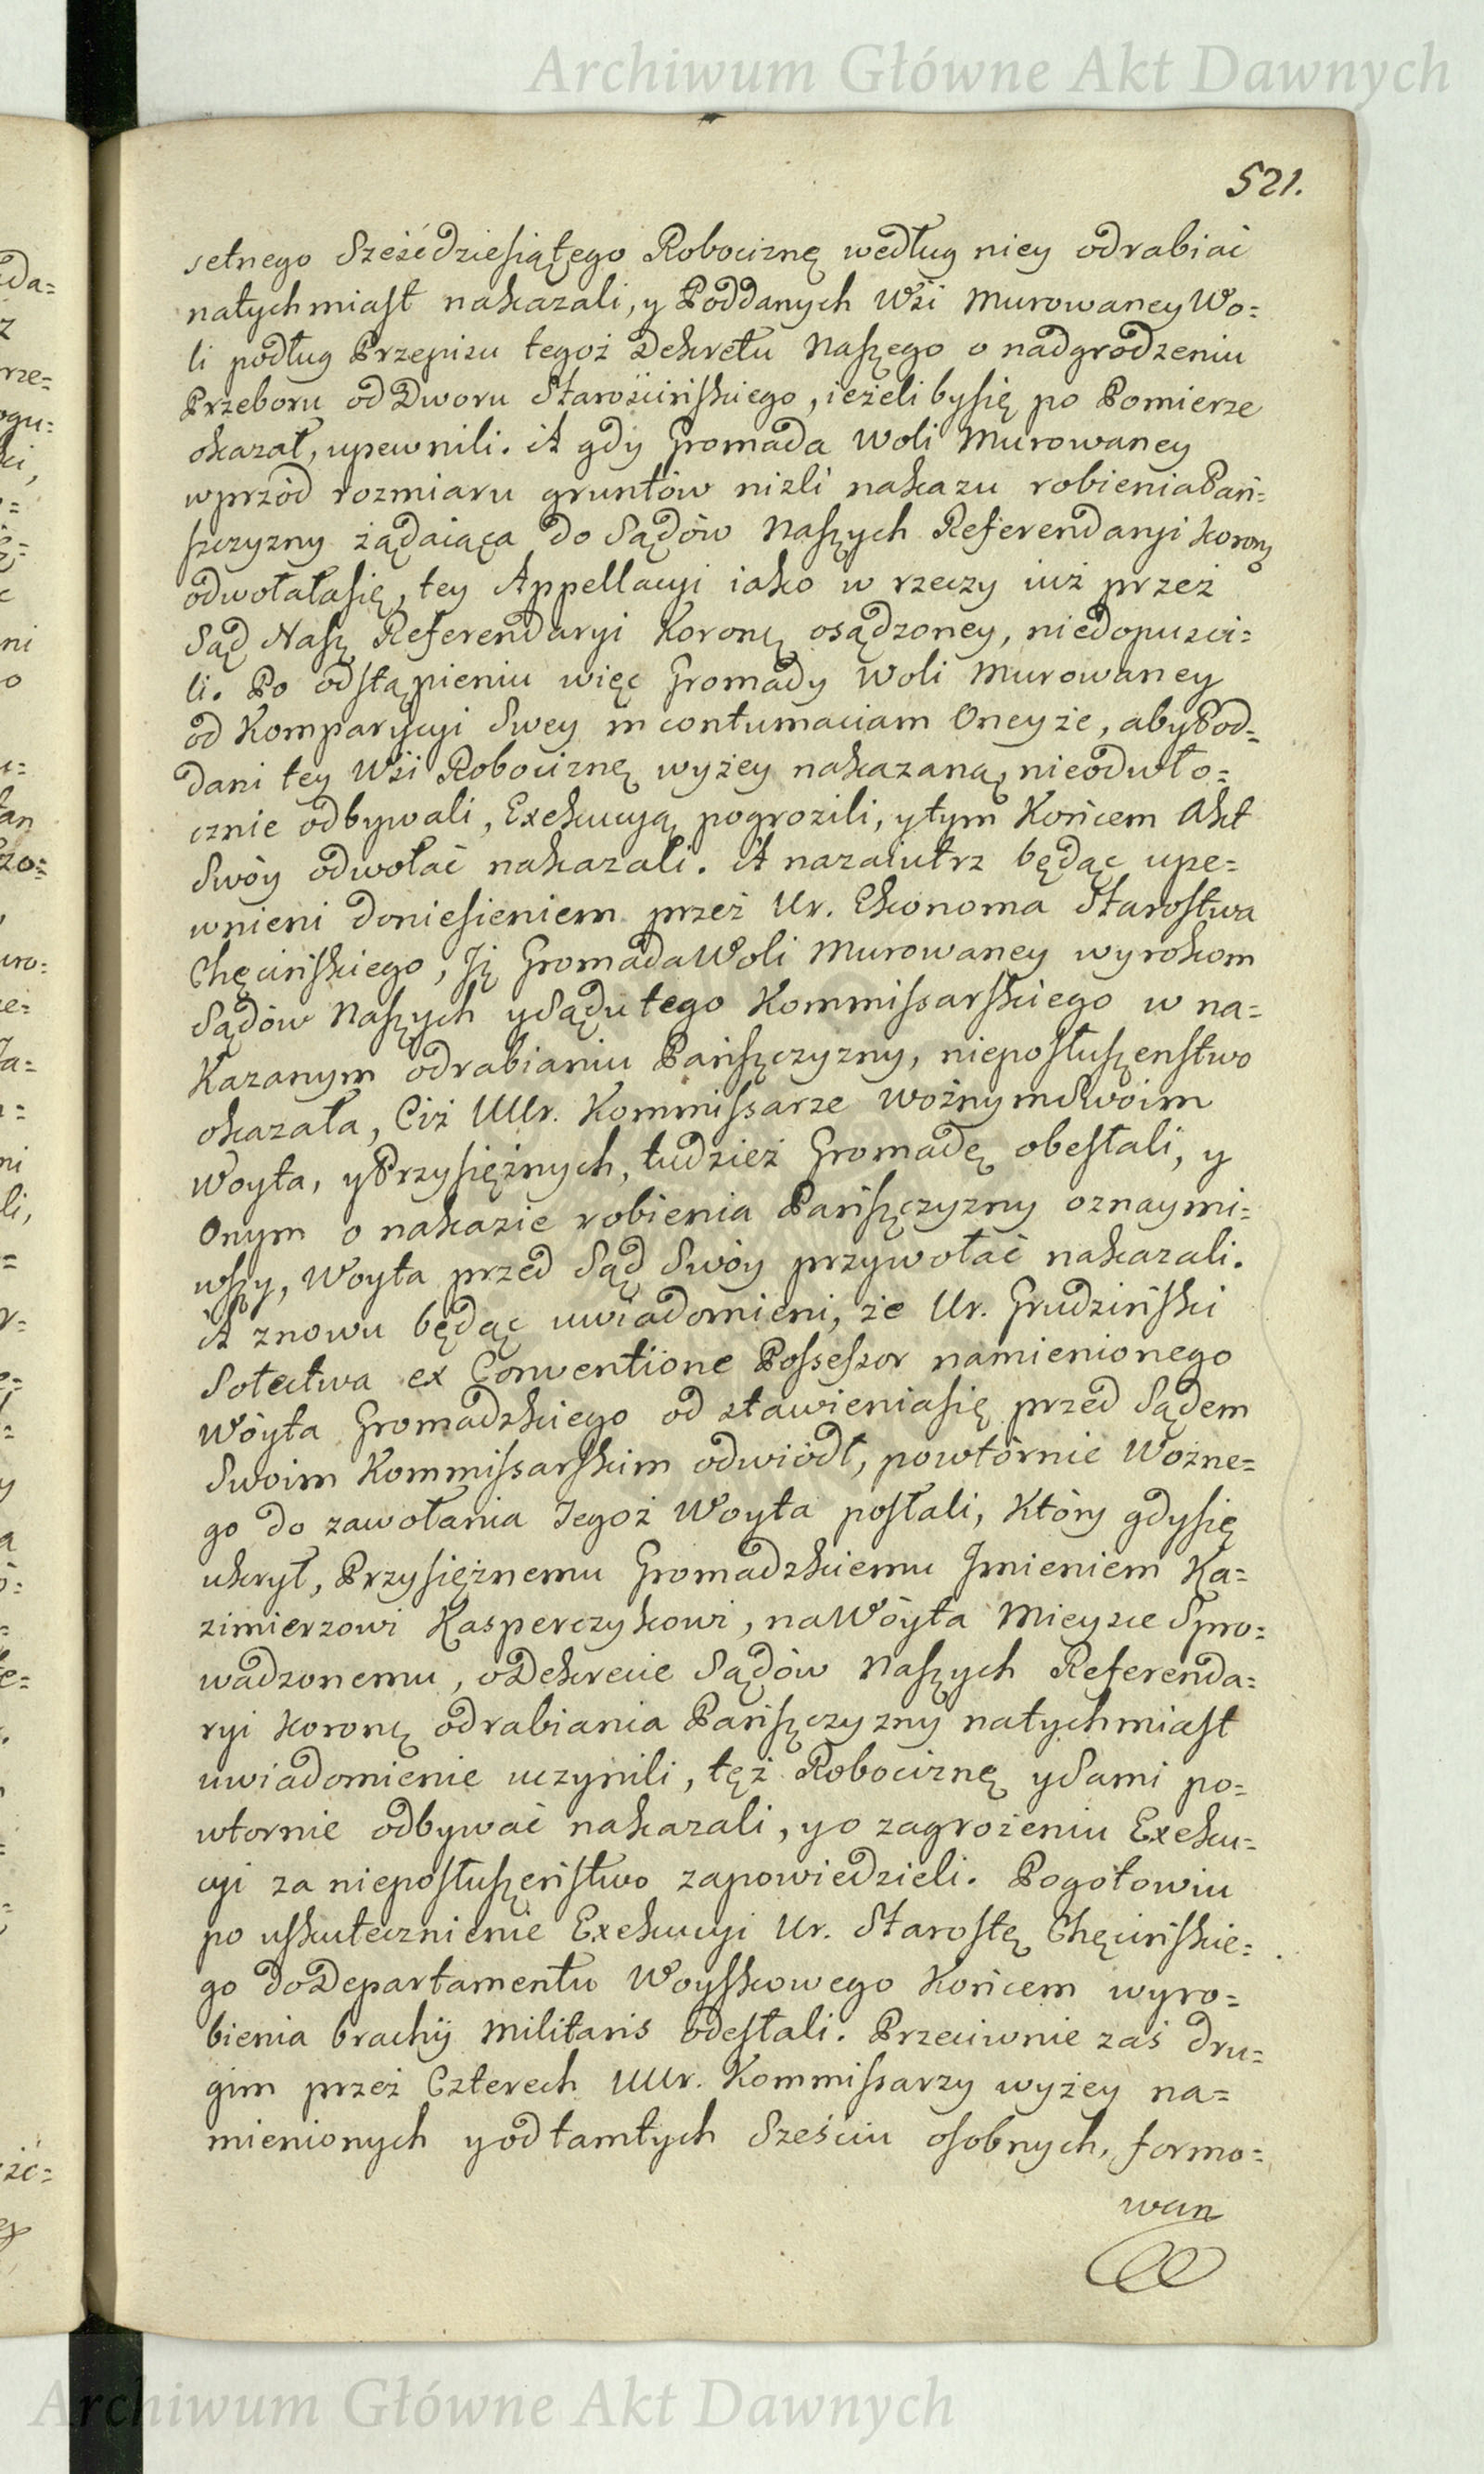 Archiwum Główne Akt Dawnych
521.
setnego Sześćdziesiątego Robociznę według niey odrabiać
natychmiast nakazali, y Poddanych Wśi Murowaney Wo=
li podług Przepisu tegoż Dekretu Naszego o nadgrodzeniu
Przeboru od Dworu Starościńskiego, ieżeli bysię po Pomierze
okazał, upewnili. A gdy Gromada Woli Murowaney
wprzód rozmiaru gruntów niżli nakazu robienia Pań=
szczyzny żądaiąca do Sądów Naszych Referendaryi Koronę
odwołałasię, tey Appellacyi iako w rzeczy iuż przez
Sąd Nasz Referendaryi Koronę osądzoney, niedopuści=
li. Po odstąpieniu więc Gromady Woli Murowaney
od Komparycyi Swey in contumaciam Oneyże, aby Pod=
dani tey Wśi Robociznę wyżey nakazaną, nieodwło=
cznie odbywali, Exekucyą pogrozili, y tym Końcem Akt
Swóy odwołać nakazali. A nazaiutrz będąc upe=
wnieni doniesieniem przez Ur. Ekonoma Starostwa
Chęcińskiego, Iż Gromada Woli Murowaney wyrokom
Sądów Naszych y Sądu tego Kommissarskiego w na=
Kazanym odrabianiu Pańszczyzny, nieposłuszenstwo
okazała, Ciż UUr. Kommissarze woźnym Swoim
Woyta, y Przysiężnych, tudzież Gromadę obesłali, y
Onym o nakazie robienia Pańszczyzny oznaymi=
wszy, Woyta przed Sąd Swóy przywołać nakazali.
A znowu będąc uwiadomieni, że Ur. Grudziński
Sołectwa ex Conventione Possessor namienionego
Wóyta Gromadzkiego od stawieniasię przed Sądem
Swoim Kommissarskim odwiódł, powtórnie Woźne=
go do zawołania Iegoż Woyta posłali, Który gdysię
ukrył, Przysiężnemu Gromadzkiemu Imieniem Ka=
zimierzowi Kasperczykowi, na Wóyta Mieysce Spro=
wadzonemu, o Dekrecie Sądów Naszych Referenda=
ryi Koronę odrabiania Pańszczyzny natychmiast
uwiadomienie uczynili, tęż Robociznę y Sami po=
wtornie odbywać nakazali, y o zagrożeniu Exeku=
cyi za nieposłuszeństwo zapowiedzieli. Pogotowiu
po uskutecznienie Exekucyi Ur. Starostę Chęcińskie=
go do Departamentu Woyskowego Końcem wyro=
bienia brachij militaris odesłali. Przeciwnie zaś dru=
gim przez Czterech UUr. Kommissarzy wyżey na=
mienionych y od tamtych Sześciu osobnych, formo=
wan
Archiwum Główne Akt Dawnych